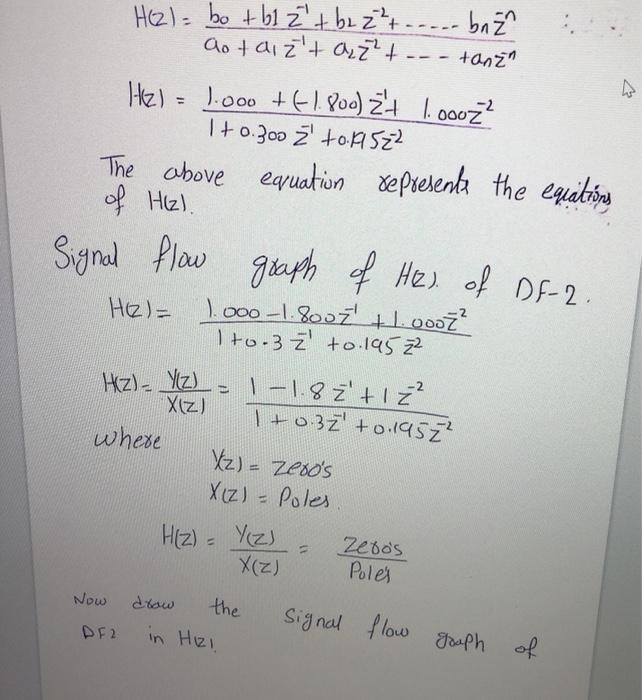 H(z) = b0 + b1 z⁻¹ + b2 z⁻² + ------ bn z⁻ⁿ
a0 + a1 z⁻¹ + a2 z⁻² + --- + an z⁻ⁿ
H(z) = 1.000 + (-1.800) z⁻¹ + 1.000 z⁻²
1 + 0.300 z⁻¹ + 0.195 z⁻²
The above equation represents the equations
of H(z).
Signal flow graph of H(z) of DF-2.
H(z) = 1.000 - 1.800 z⁻¹ + 1.000 z⁻²
1 + 0.3 z⁻¹ + 0.195 z⁻²
H(z) = Y(z) / X(z) = 1 - 1.8 z⁻¹ + 1 z⁻²
1 + 0.3 z⁻¹ + 0.195 z⁻²
where
Y(z) = zero's
X(z) = Poles.
H(z) = Y(z) / X(z) = Zero's / Pole's
Now draw the Signal flow graph of
DF2 in H(z)